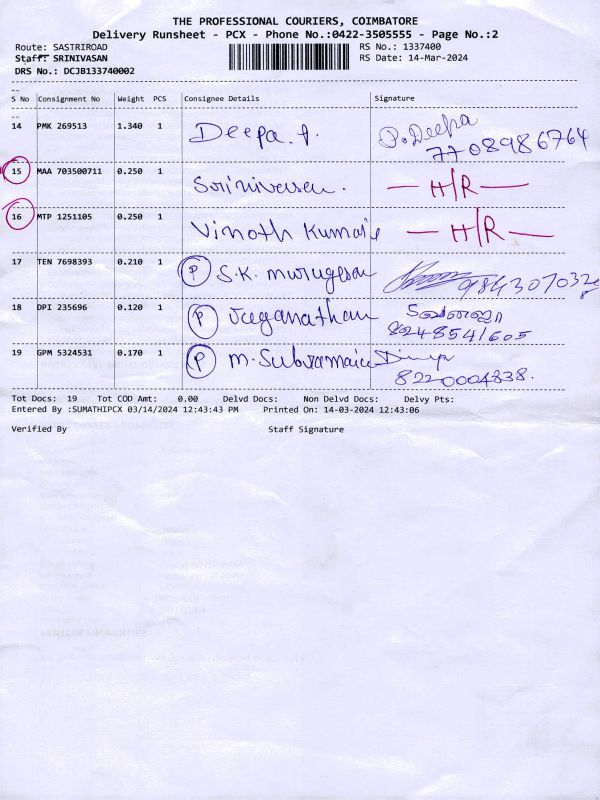 THE PROFESSIONAL COURIERS, COIMBATORE
Delivery Runsheet - PCX - Phone No.:0422-3505555 - Page No.:2
Route: SASTRIROAD RS No.: 1337400
Staff: SRINIVASAN RS Date: 14-Mar-2024
DRS No.: DCJB133740002
S No Consignment No Weight PCS Consignee Details Signature
14 PMK 269513 1.340 1 Deepa. P. P. Deepa
7708986764
15 MAA 703500711 0.250 1 Srinivasan. — H/R —
16 MTP 1251105 0.250 1 Vinoth Kumar — H/R —
17 TEN 7698393 0.210 1 (P) S.K. Murugesan
18 DPI 235696 0.120 1 (P) Jaganathan
8248541605
19 GPM 5324531 0.170 1 (P) M. Subramaniam
8220004838.
Tot Docs: 19 Tot COD Amt: 0.00 Delvd Docs: Non Delvd Docs: Delvy Pts:
Entered By :SUMATHIPCX 03/14/2024 12:43:43 PM Printed On: 14-03-2024 12:43:06
Verified By Staff Signature